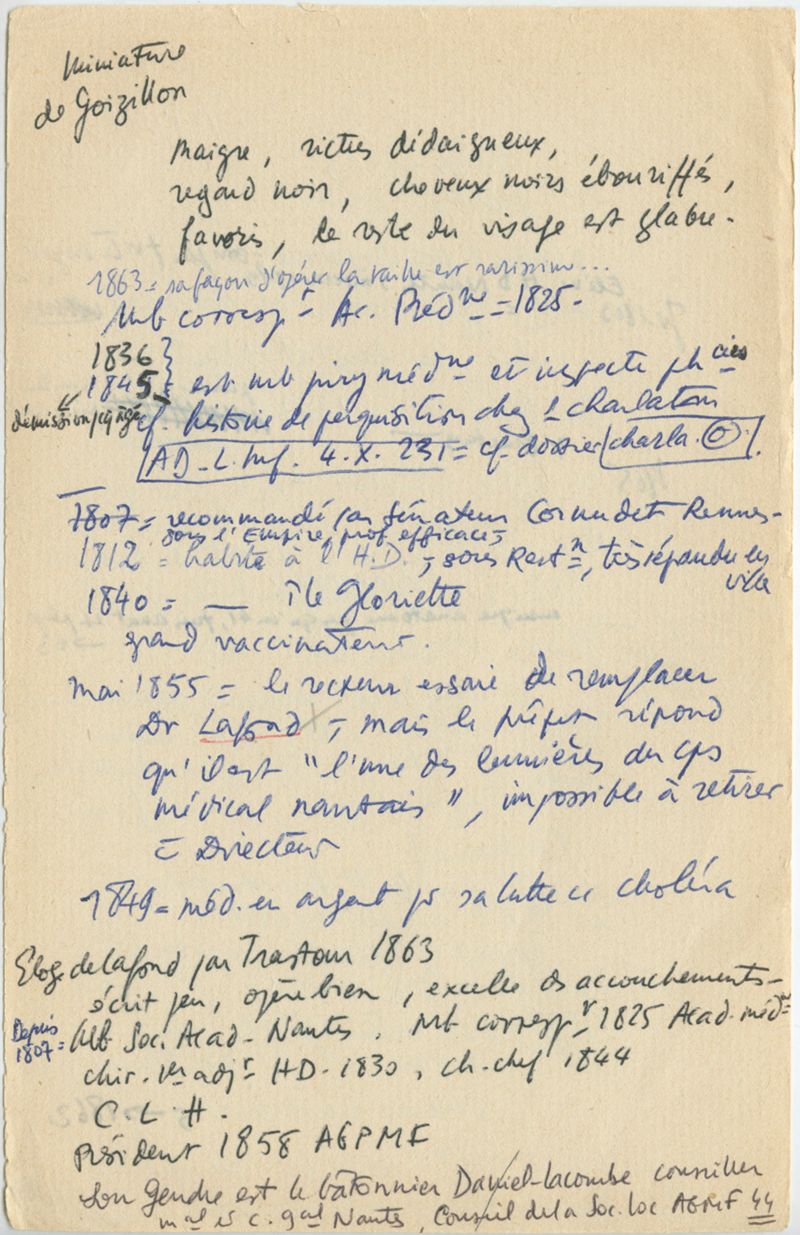 Miniature
de Goizillon
maigre, rictus dédaigneux,
regard noir, cheveux noirs ébouriffés,
favoris, le reste du visage est glabre.
1863 = sa façon d'opérer la taille est rarissime...
Mb correspt Ac. Médne = 1825.
1836 }
1845 } = est mb jury médne et inspecte phcies
démission pr âge
cf. histoire de perquisition chez 1 charlatan
AD. L. Inf. 4. X. 231 = cf. dossier charla.
1807 = recommandé par Sénateur Cornudet Rennes-
sous l'Empire, prof. efficace,
1812 = habite à l'H.D. , sous Restn, très répandu en
ville
1840 = — île Gloriette
grand vaccinateur.
mai 1855 = le recteur essaie de remplacer
Dr Lafond, mais le préfet répond
qu'il est "l'une des lumières du cps
médical nantais", impossible à retirer
= Directeur
1849 = méd. en argent pr sa lutte c choléra
Eloge de Lafond par Trastour 1863
écrit peu, opère bien, excelle ds accouchements-
Depuis
1807 =
Mb Soc. Acad. Nantes. Mb correspt 1825 Acad. médne
chir. adjt HD. 1830, ch. chef 1844
C. L. H.
Président 1858 AGPMF
Son gendre est le bâtonnier Daniel-Lacombe conseiller
mal et c. gal Nantes, Conseil de la Soc. loc AGMF 44